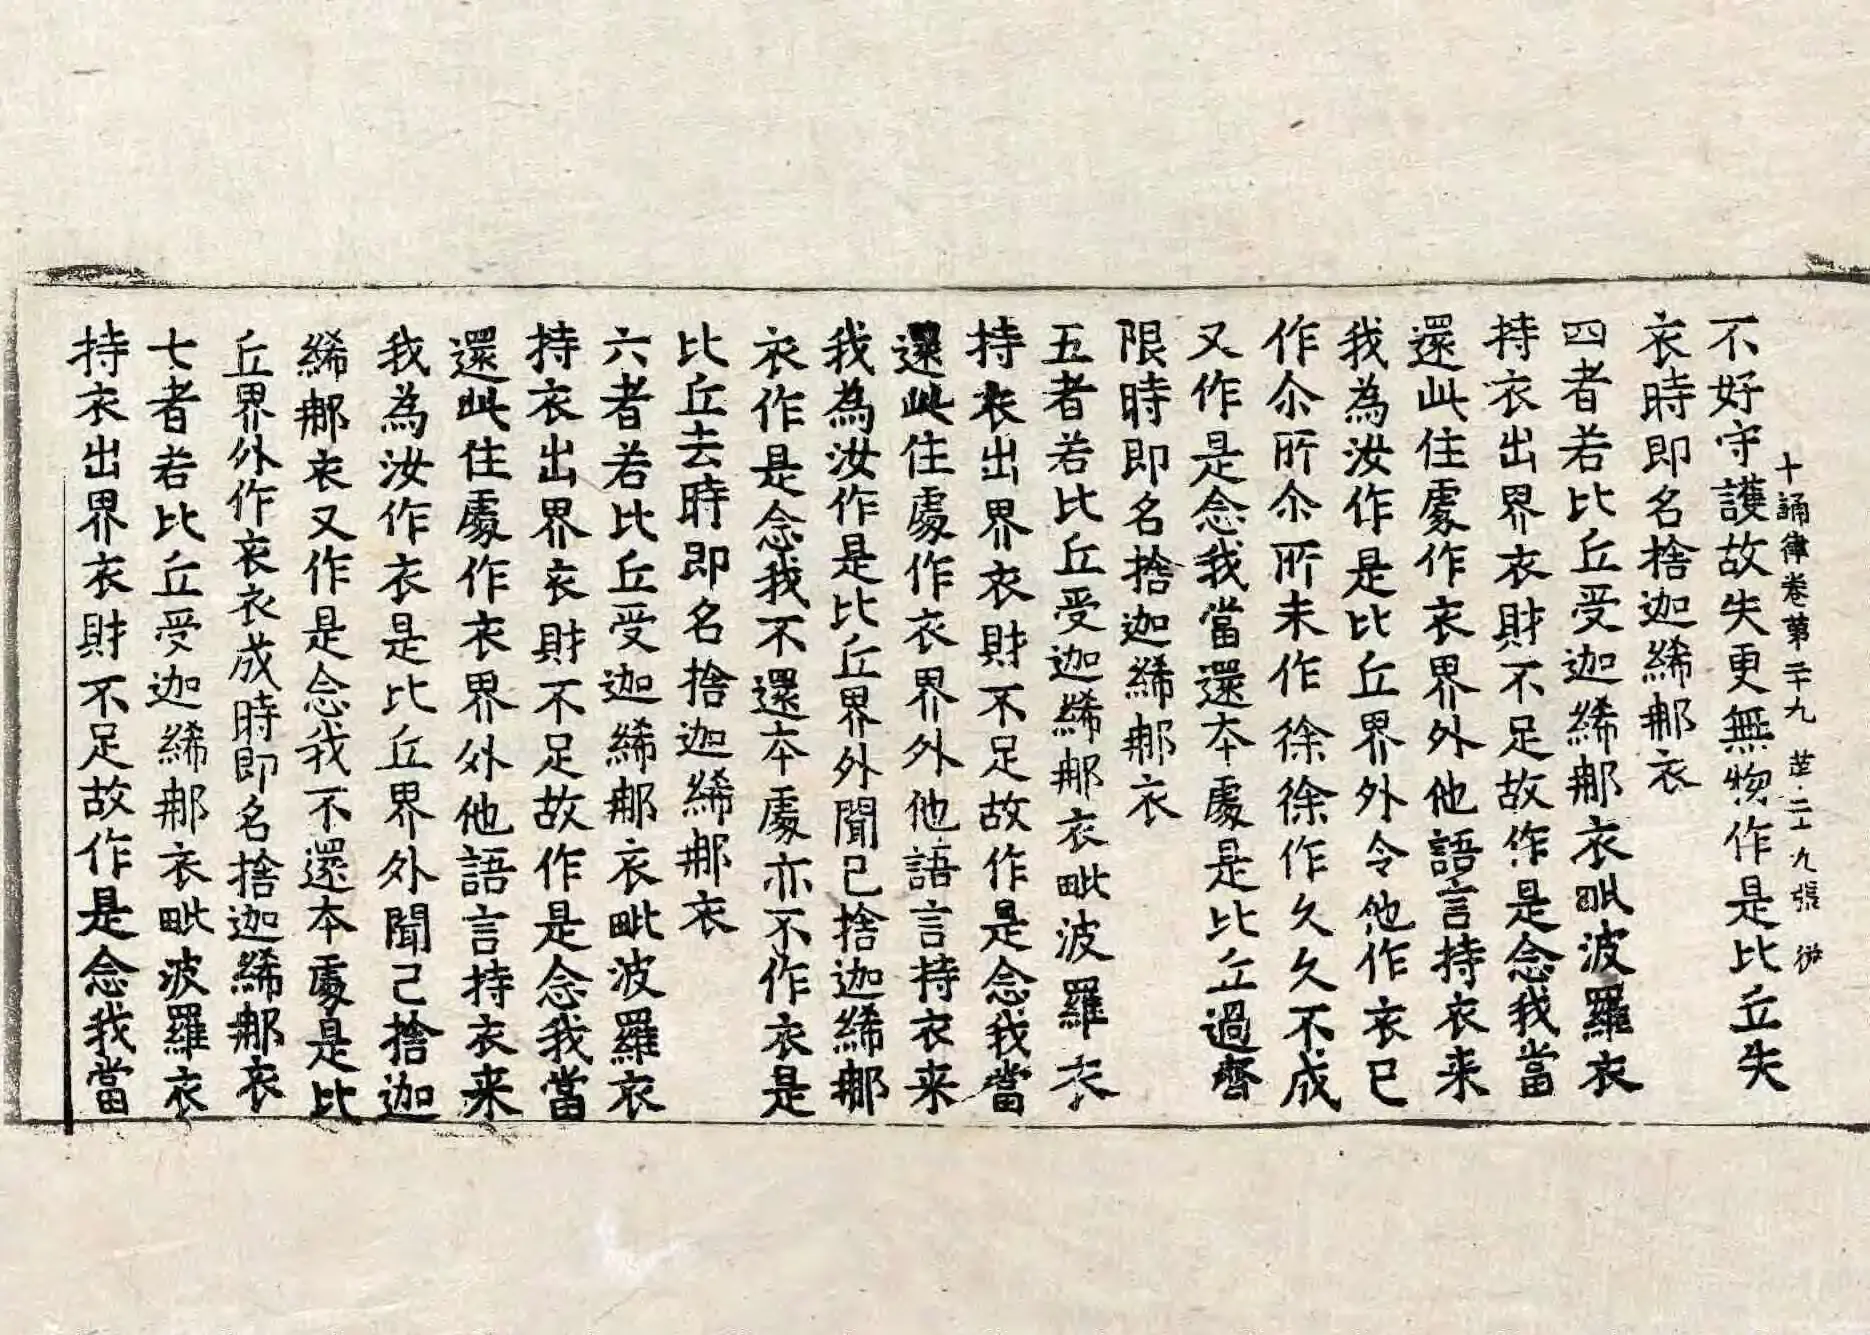 十誦律卷第二十九 二十九張
不好守護故失更無物作是比丘失
衣時即名捨迦絺那衣
四者若比丘受迦絺那衣毗波羅衣
持衣出界衣財不足故作是念我當
還此住處作衣界外他語言持衣来
我為汝作是比丘界外令他作衣已
作尒所尒所未作徐徐作久久不成
又作是念我當還本處是比丘過齊
限時即名捨迦絺那衣
五者若比丘受迦絺那衣毗波羅衣
持衣出界衣財不足故作是念我當
還此住處作衣界外他語言持衣来
我為汝作是比丘界外聞已捨迦絺那
衣作是念我不還本處亦不作衣是
比丘去時即名捨迦絺那衣
六者若比丘受迦絺那衣毗波羅衣
持衣出界衣財不足故作是念我當
還此住處作衣界外他語言持衣来
我為汝作衣是比丘界外聞已捨迦
絺那衣又作是念我不還本處是比
丘界外作衣衣成時即名捨迦絺那衣
七者若比丘受迦絺那衣毗波羅衣
持衣出界衣財不足故作是念我當